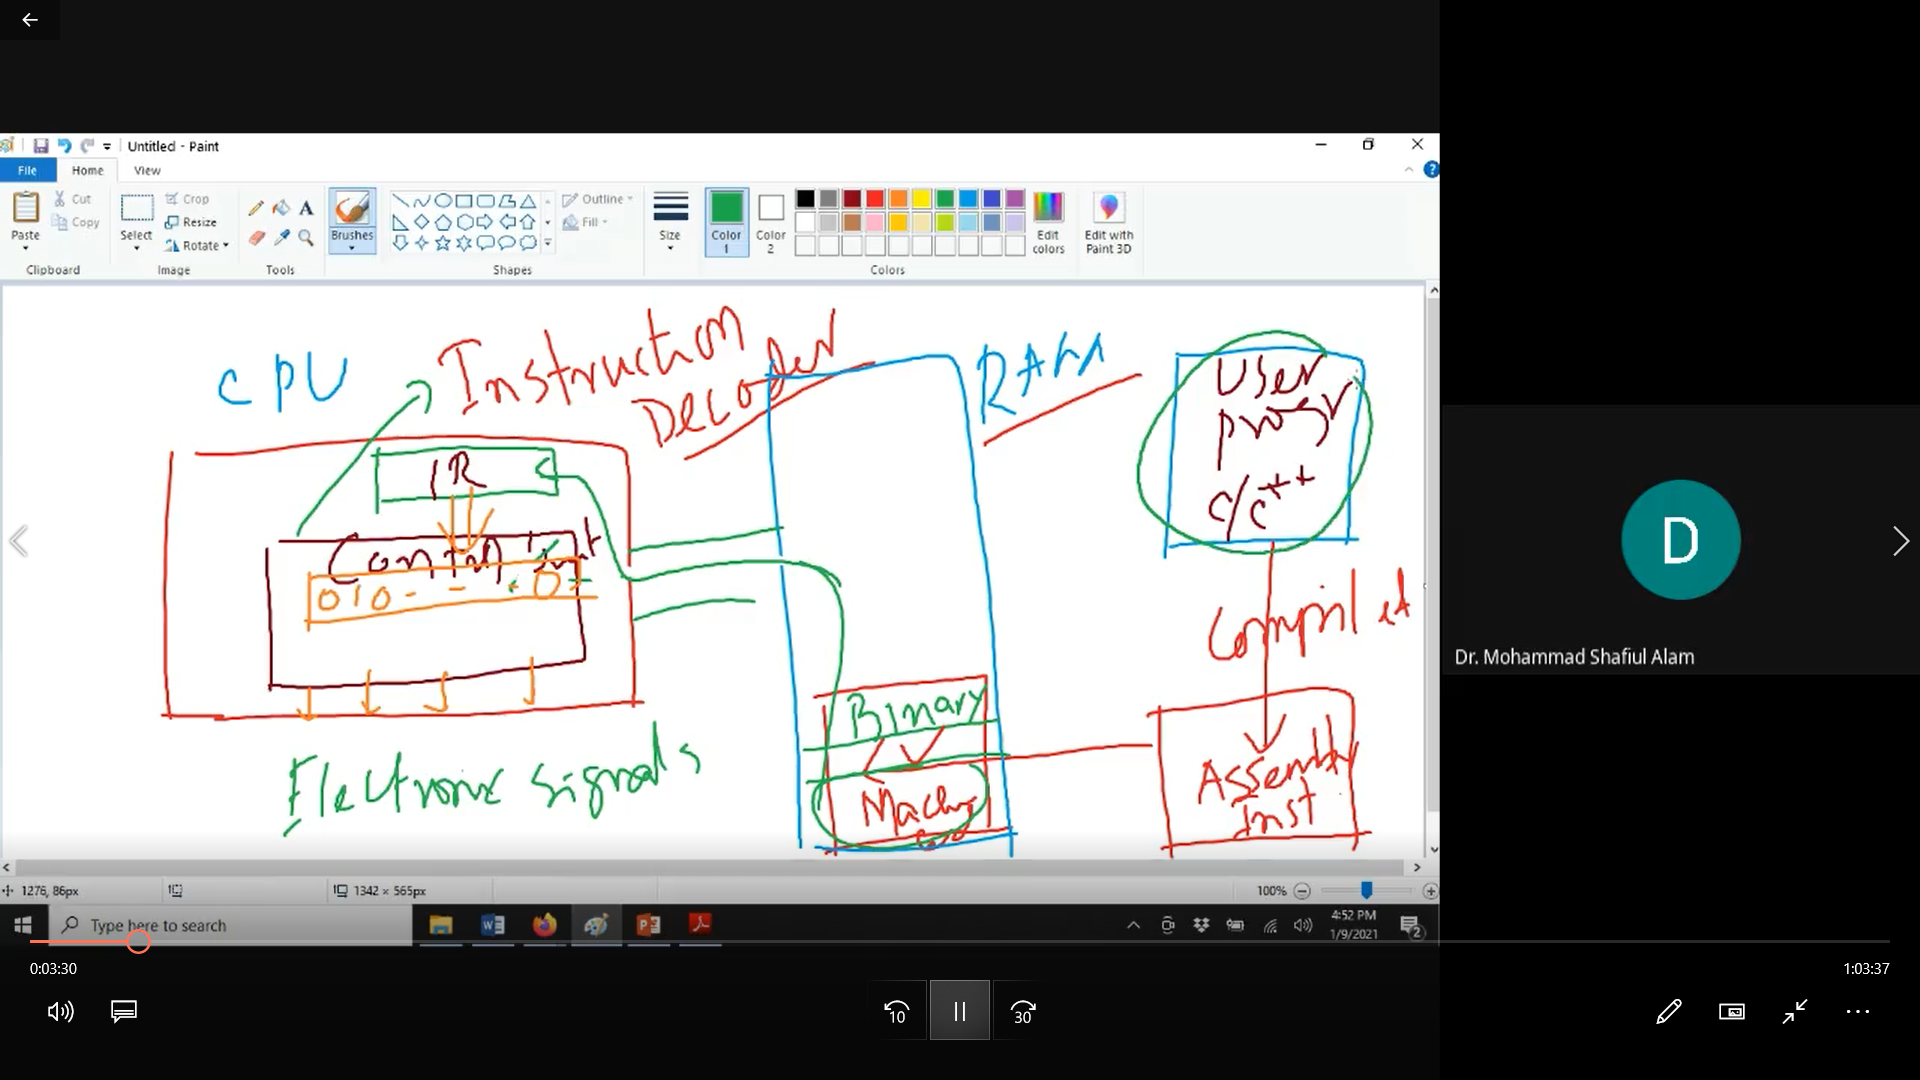 Untitled - Paint
File Home View
Paste
Cut
Copy
Clipboard
Select
Crop
Resize
Rotate
Image
Tools
Brushes
Shapes
Outline
Fill
Size
Color 1
Color 2
Edit colors
Edit with Paint 3D
Colors
CPU
Instruction
Decoder
RAM
User
progr
C/C++
IR
Control Unit
010- - 0
Compiled
Binary
Assembly
Inst
Electronic signals
1276, 86px
1342 × 565px
100%
Type here to search
4:52 PM
1/9/2021
2
D
Dr. Mohammad Shafiul Alam
0:03:30
1:03:37
10
30